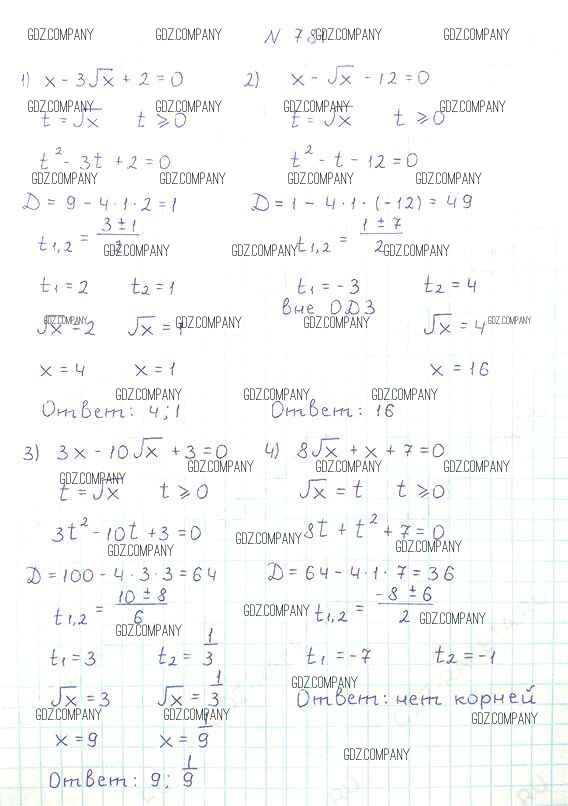 GDZ.COMPANY GDZ.COMPANY N 781 GDZ.COMPANY GDZ.COMPANY
1) x - 3√x + 2 = 0
GDZ.COMPANY GDZ.COMPANY
t = √x t ⩾ 0
t² - 3t + 2 = 0
GDZ.COMPANY GDZ.COMPANY
D = 9 - 4·1·2 = 1
t₁,₂ = (3 ± 1)/2
GDZ.COMPANY
t₁ = 2 t₂ = 1
√x = 2 √x = 1
GDZ.COMPANY GDZ.COMPANY
x = 4 x = 1
GDZ.COMPANY
Ответ: 4; 1
2) x - √x - 12 = 0
GDZ.COMPANY GDZ.COMPANY
t = √x t ⩾ 0
t² - t - 12 = 0
GDZ.COMPANY GDZ.COMPANY
D = 1 - 4·1·(-12) = 49
t₁,₂ = (1 ± 7)/2
GDZ.COMPANY GDZ.COMPANY
t₁ = -3 t₂ = 4
вне ОДЗ
GDZ.COMPANY GDZ.COMPANY
√x = 4
x = 16
GDZ.COMPANY GDZ.COMPANY
Ответ: 16
3) 3x - 10√x + 3 = 0
GDZ.COMPANY GDZ.COMPANY
t = √x t ⩾ 0
3t² - 10t + 3 = 0
GDZ.COMPANY
D = 100 - 4·3·3 = 64
t₁,₂ = (10 ± 8)/6
GDZ.COMPANY
t₁ = 3 t₂ = 1/3
√x = 3 √x = 1/3
GDZ.COMPANY GDZ.COMPANY
x = 9 x = 1/9
Ответ: 9; 1/9
4) 8√x + x + 7 = 0
GDZ.COMPANY GDZ.COMPANY
√x = t t ⩾ 0
8t + t² + 7 = 0
GDZ.COMPANY GDZ.COMPANY
D = 64 - 4·1·7 = 36
t₁,₂ = (-8 ± 6)/2
GDZ.COMPANY GDZ.COMPANY
t₁ = -7 t₂ = -1
GDZ.COMPANY
Ответ: нет корней
GDZ.COMPANY
GDZ.COMPANY